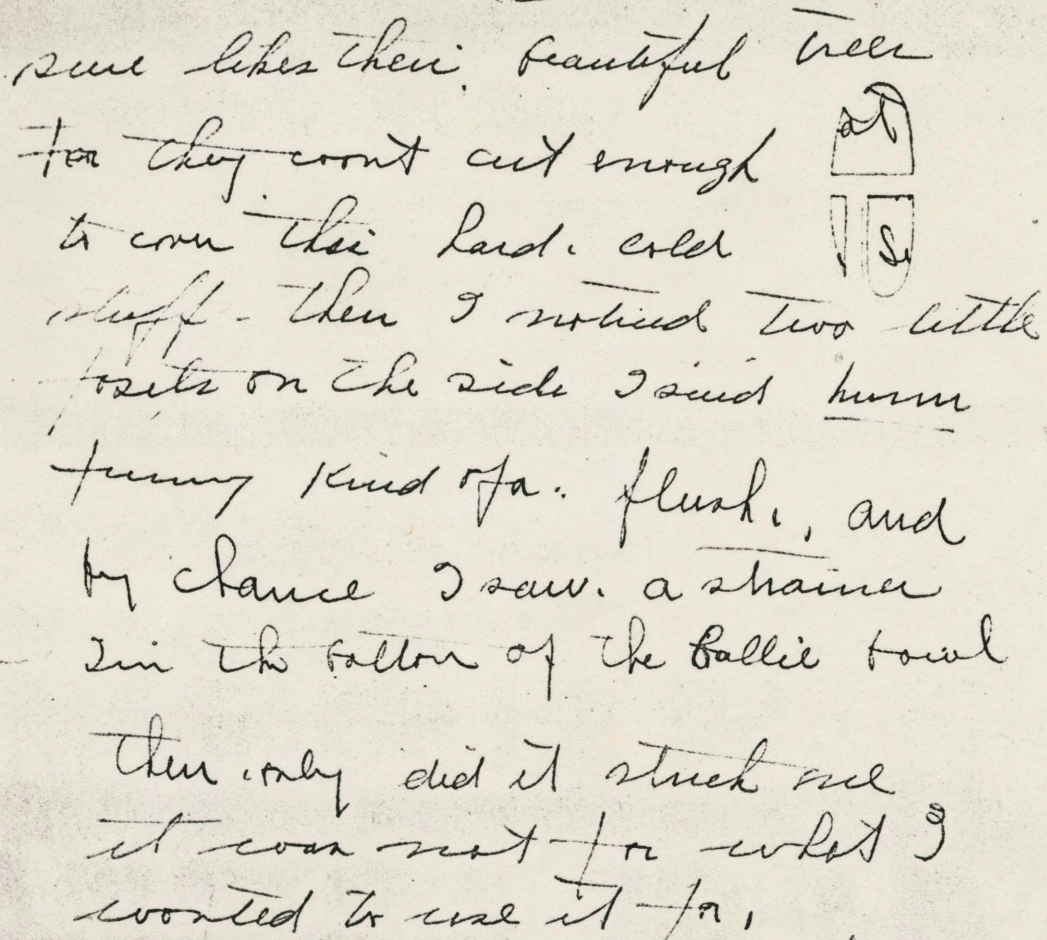 sure likes their. beautiful trees
for they wont cut enough
to cover this hard. cold
stuff - then I noticed two little
fosets on the side I said humm
funny kind of a.. flush., and
by chance I saw. a strainer
in the bottom of the Ballie bowl
then only did it struck me
it was not for what I
wanted to use it for,